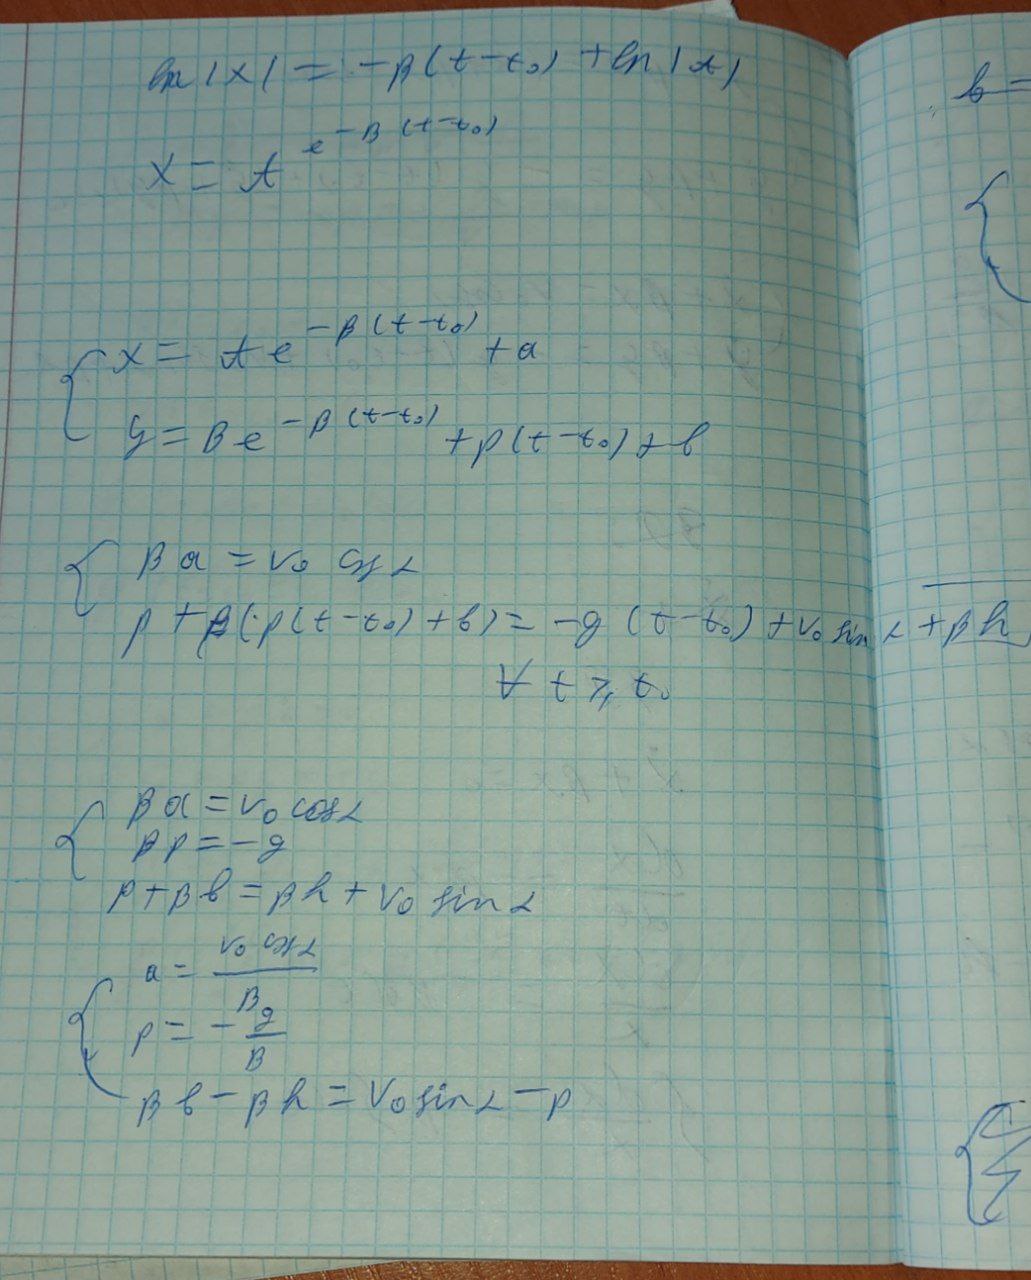 ln |x| = -β(t-t₀) + ln |A|
x = A e^{-β(t-t₀)}
{ x = A e^{-β(t-t₀)} + a
y = B e^{-β(t-t₀)} + p(t-t₀) + b
{ βa = v₀ cos α
p + β(p(t-t₀) + b) = -g(t-t₀) + v₀ sin α + βh
∀ t ⩾ t₀
{ βa = v₀ cos α
βp = -g
p + βb = βh + v₀ sin α
{ a = v₀ cos α / β
p = - g / β
βb - βh = v₀ sin α - p
b =
{
{